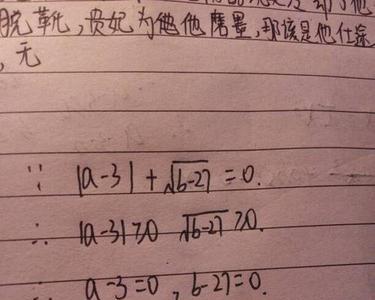 脱靴,贵妃为他他磨墨,那该是他仕途
,无
∵ |a-3| + √(b-27) = 0.
∴ |a-3|≥0 √(b-27) ≥0.
∴ a-3=0, b-27=0.